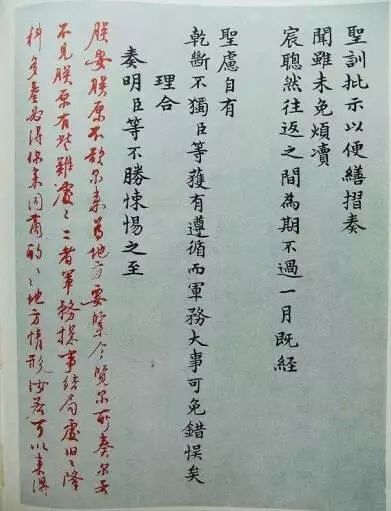 聖訓批示以便繕摺奏
聞雖未免煩瀆
宸聰然往返之間為期不過一月既經
聖慮自有
乾斷不獨臣等獲有遵循而軍務大事可免錯悞矣
理合
奏明臣等不勝悚惕之至
朕安朕原不欲尔来為地方要緊今覽尔所奏尔若
不見朕原有些難處〻二者軍務總事結局處旧〻隆
科多奏必得你来同商酌的〻地方情形汝若可以来得